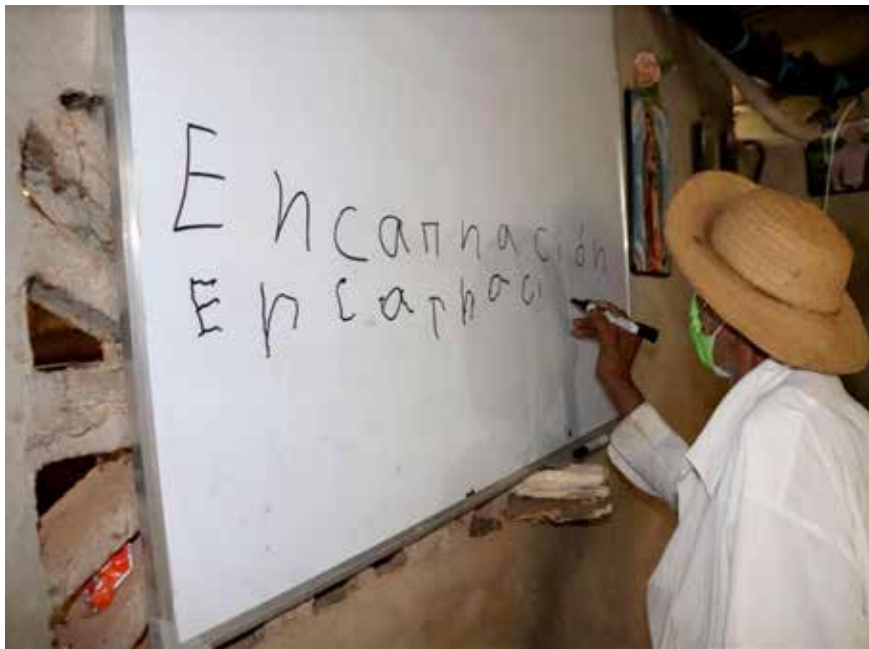 Encarnación
Encarnaci